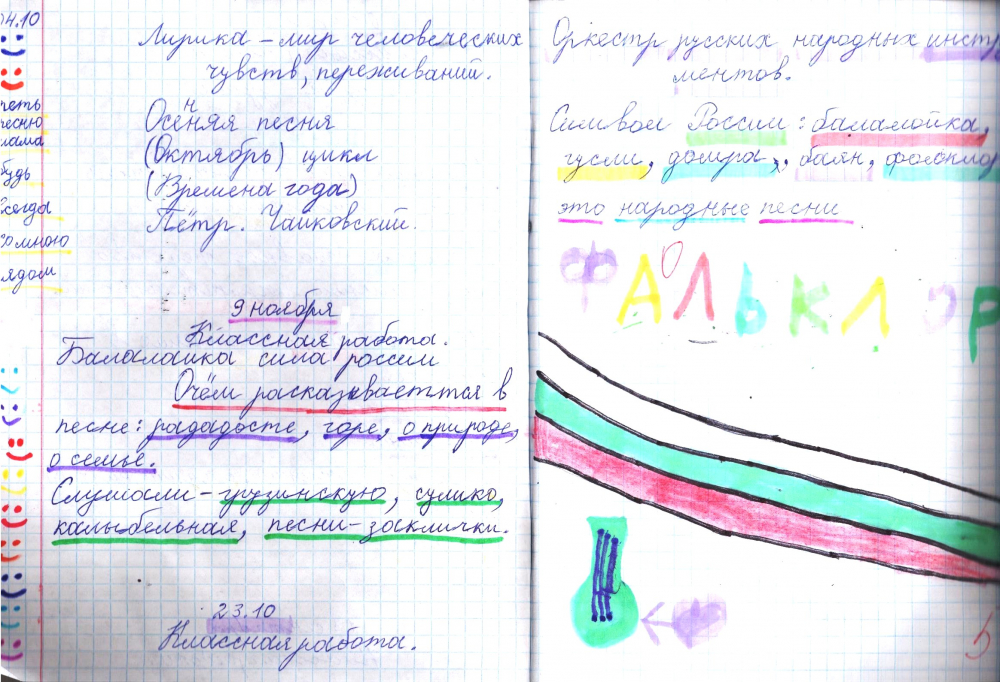 04.10
Лирика – мир человеческих
чувств, переживаний.
н
Осеняя песня
(Октябрь) цикл
(Времена года)
Пётр. Чайковский.
песню
мама
будь
всегда
со мною
рядом
9 ноября
Классная работа.
Балалайка сила россии
Очём расказываеттся в
песне: рададосте, горе, о природе,
о семье.
Слушали – грузинскую, сулико,
калыбельная, песни-заклички.
23.10
Классная работа.
Оркестр русских народных инстр
ментов.
Символ России: балалойка,
гусли, домра, баян, фольклор
это народные песни
О
ФАЛЬКЛОР
5